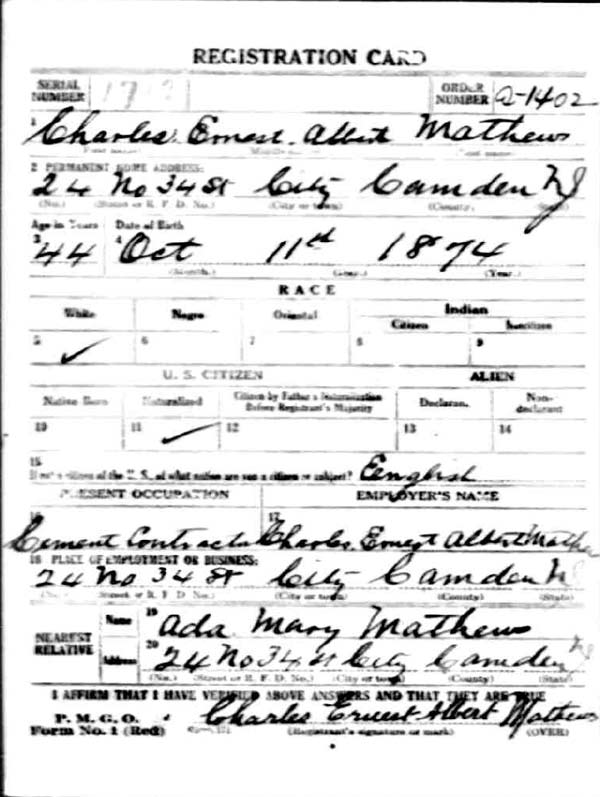 REGISTRATION CARD
SERIAL NUMBER
ORDER NUMBER a-1402
1 Charles Ernest Albert Mathews
2 PERMANENT HOME ADDRESS:
24 No 34 St City Camden NJ
(No.) (Street or R. F. D. No.) (City or town) (County) (State)
Age in Years Date of Birth
3 44 4 Oct 11th 1874
(Month.) (Day.) (Year.)
RACE
White Negro Oriental Indian
Citizen Noncitizen
5 ✓ 6 7 8 9
U. S. CITIZEN ALIEN
Native Born Naturalized Citizen by Father's Naturalization Before Registrant's Majority Declarant Non-declarant
10 11 ✓ 12 13 14
15
If not a citizen of the U. S., of what nation are you a citizen or subject? Eenglish
PRESENT OCCUPATION EMPLOYER'S NAME
16 17
Cement Contractor Charles Ernest Albert Mathews
18 PLACE OF EMPLOYMENT OR BUSINESS:
24 No 34 St City Camden NJ
(No.) (Street or R. F. D. No.) (City or town) (County) (State)
NEAREST RELATIVE
Name 19 Ada Mary Mathews
Address 20 24 No 34 St City Camden NJ
(No.) (Street or R. F. D. No.) (City or town) (County) (State)
I AFFIRM THAT I HAVE VERIFIED ABOVE ANSWERS AND THAT THEY ARE TRUE
P. M. G. O.
Form No. 1 (Red) Charles Ernest Albert Mathews
(Registrant's signature or mark) (OVER)